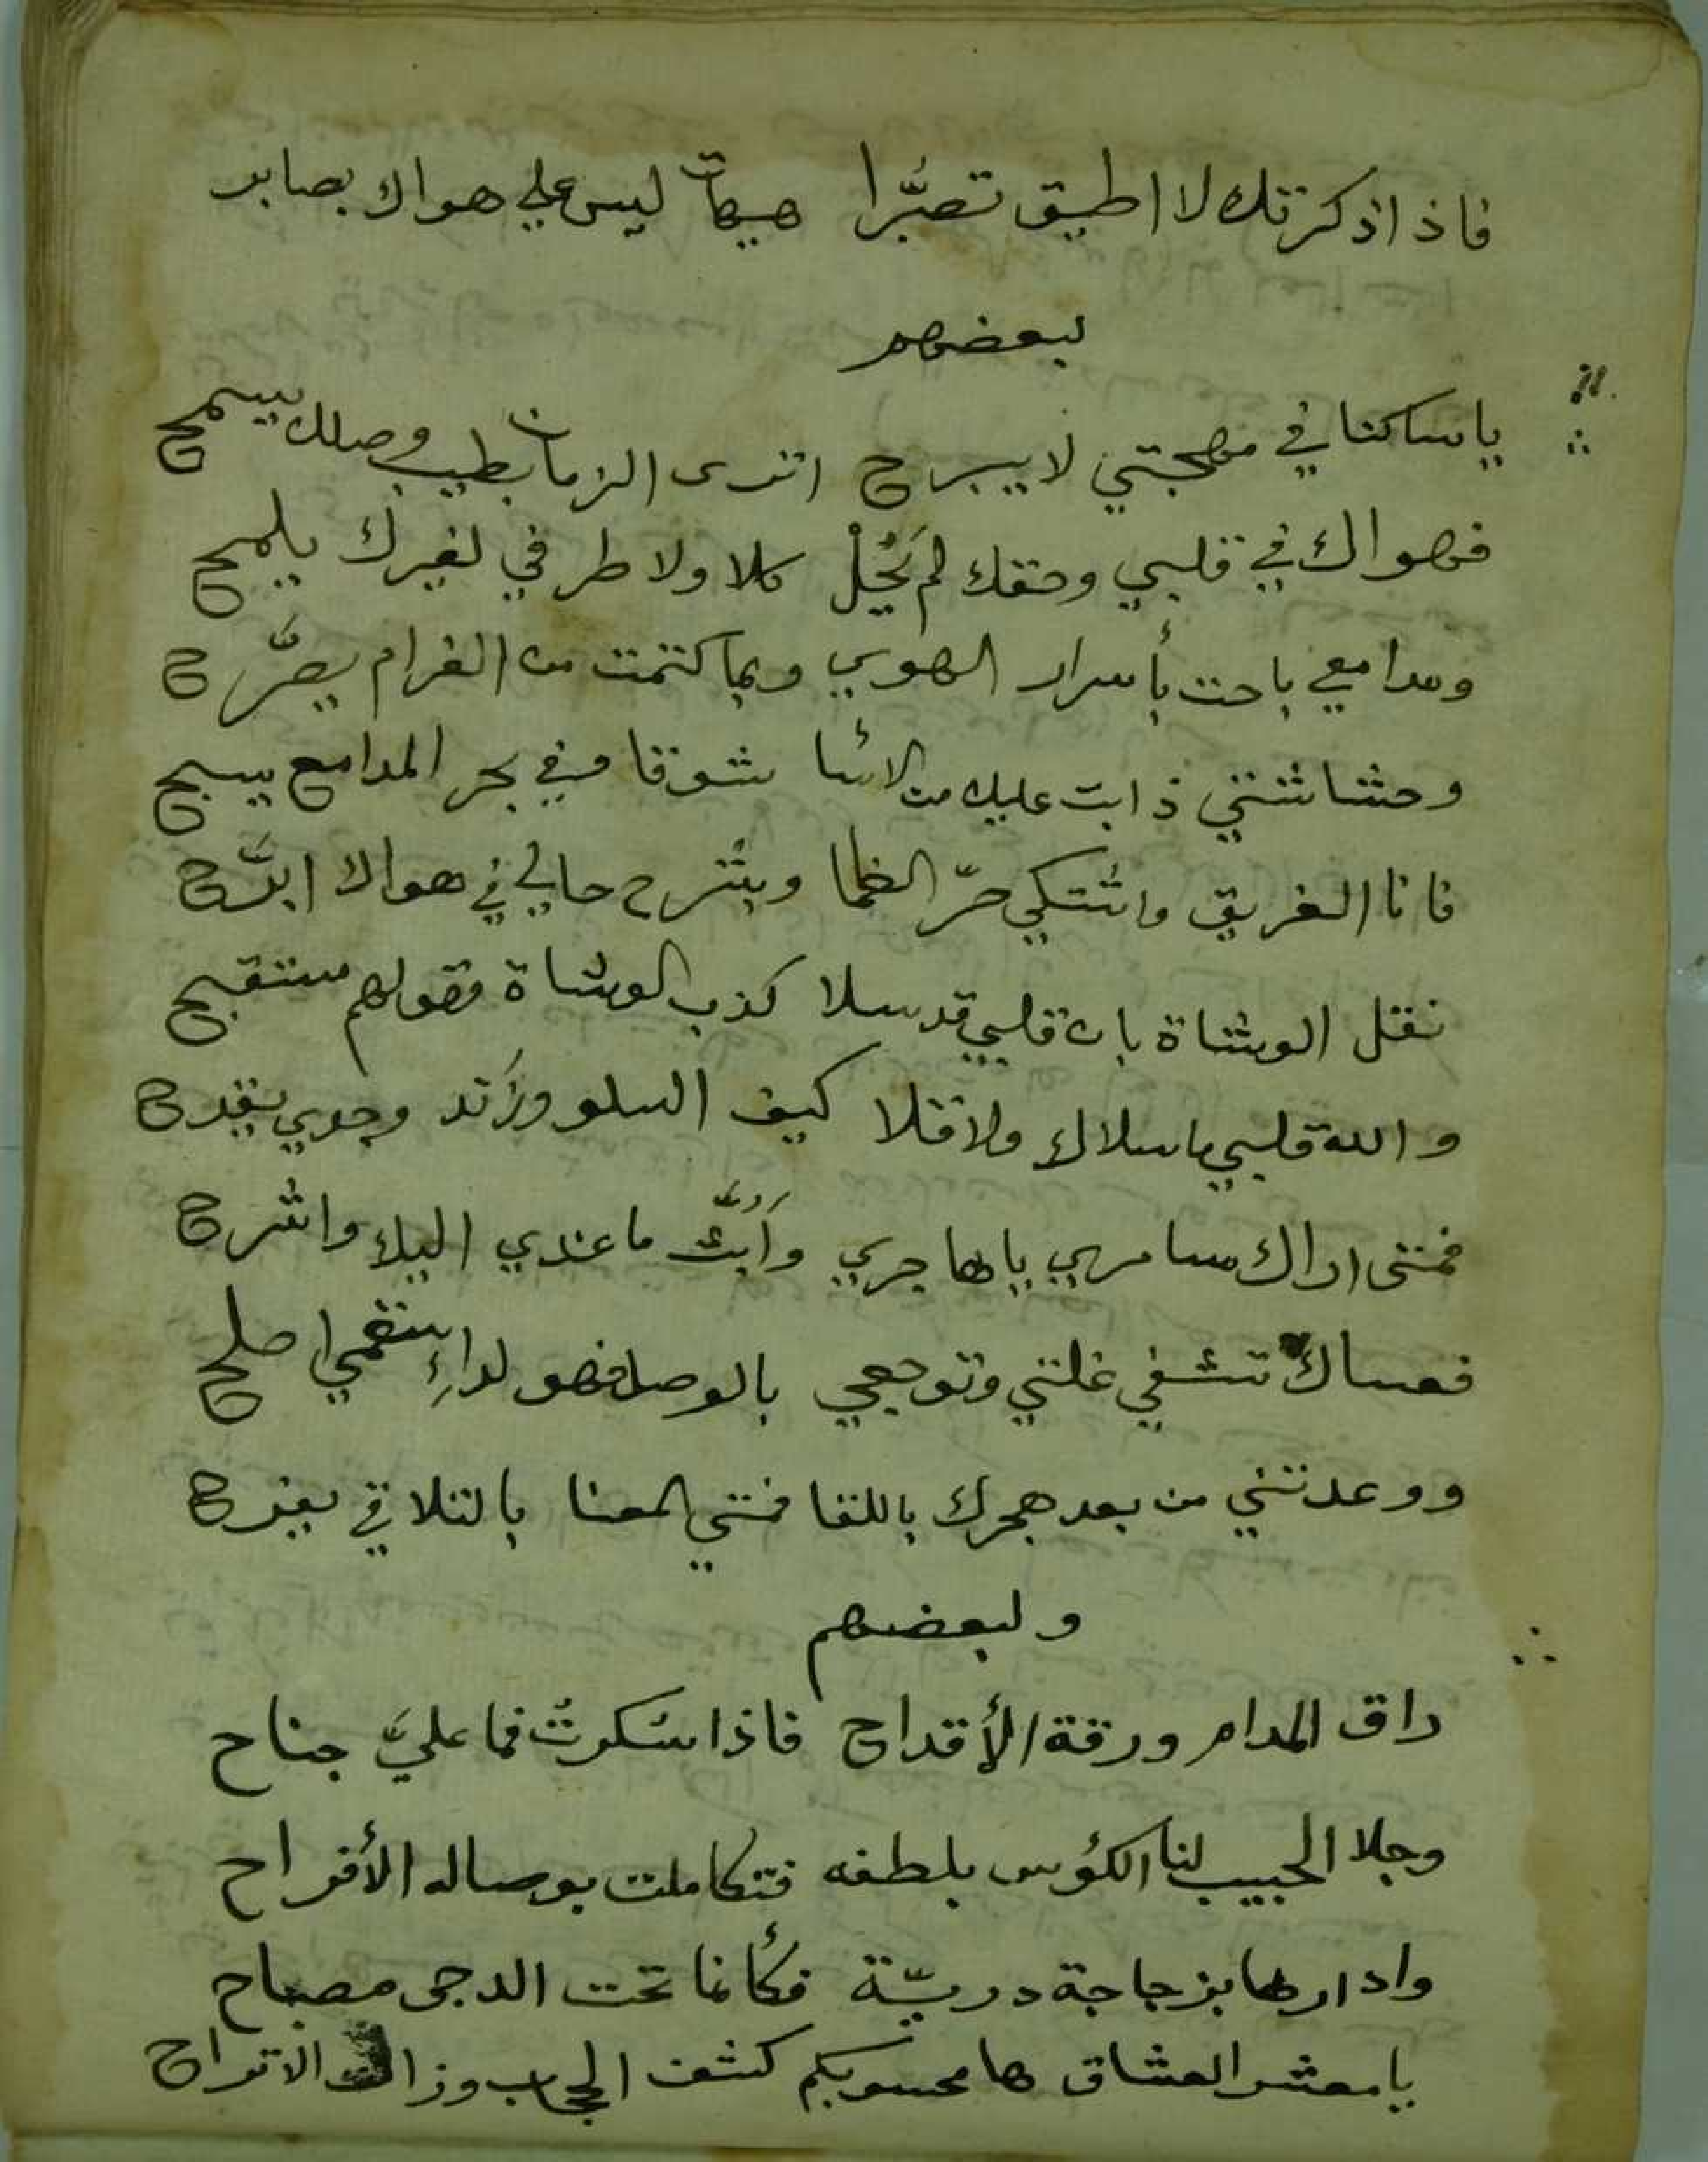 فاذا ذكرتك لا اطيق تصبُّرا هيهات ليس علي هواك بصابر
لبعضهم
ياساكنا في مهجتي لايبرح اترى الزمان بطيب وصلك يسمح
فهواك في قلبي وحقك لم يَحُلْ كلا ولا طرفي لغيرك يلمح
ومدامعي باحت بأسرار الهوي وبما كتمت من الغرام يصرَّح
وحشاشتي ذابت عليك من الاسا شوقا وفي بحر المدامع يسبح
فانا الغريق واشتكي حرّ الظما وبشرح حالي في هواك ابرَّح
نقل الوشاة بان قلبي قد سلا كذب الوشاة فقولهم مستقبح
والله قلبي ماسلاك ولا قلا كيف السلو وزَند وجدي يقدح
فمتى اراك مسامري ياهاجري وأَبُثَّ ما عندي اليك واشرح
فعساك تشفي غلتي وتوجعي بالوصل فهو لداءِ سقمي اصلح
ووعدتني من بعد هجرك باللقا فمتي المعنا بالتلاقي يفرح
ولبعضهم
راق المدام ورقة الأقداح فاذا سكرتُ فما عليَّ جناح
وجلا الحبيب لنا الكؤس بلطفه فتكاملت بوصاله الأفراح
وادارها بزجاجة دريّة فكأنما تحت الدجى مصباح
يا معشر العشاق ها محبوبكم كشف الحجاب وزالت الاتراح